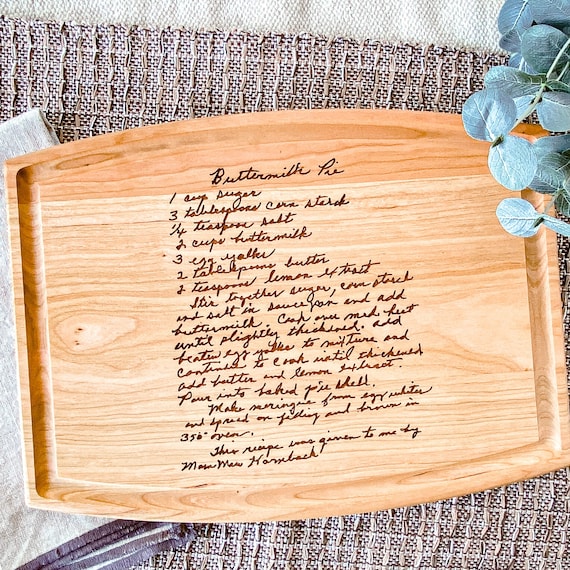 Buttermilk Pie
1 cup sugar
3 tablespoons corn starch
1/4 teaspoon salt
2 cups buttermilk
3 egg yolks
2 tablespoons butter
2 teaspoons lemon extract
Stir together sugar, corn starch
and salt in sauce pan and add
buttermilk. Cook over med. heat
until slightly thickened. add
beaten egg yolks to mixture and
continue to cook until thickened
add butter and lemon extract.
Pour into baked pie shell.
Make meringue from egg whites
and spread on filling and brown in
350° oven.
This recipe was given to me by
Mam Maw Hornback